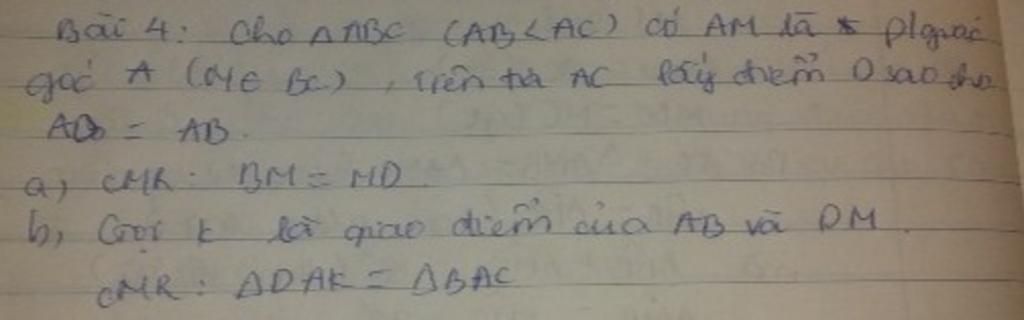 Bài 4: Cho ΔABC (AB < AC) có AM là p/giác
góc A (M ∈ BC), trên tia AC lấy điểm D sao cho
AD = AB.
a) CMR: BM = MD
b, Gọi K là giao điểm của AB và DM.
CMR: ΔDAK = ΔBAC